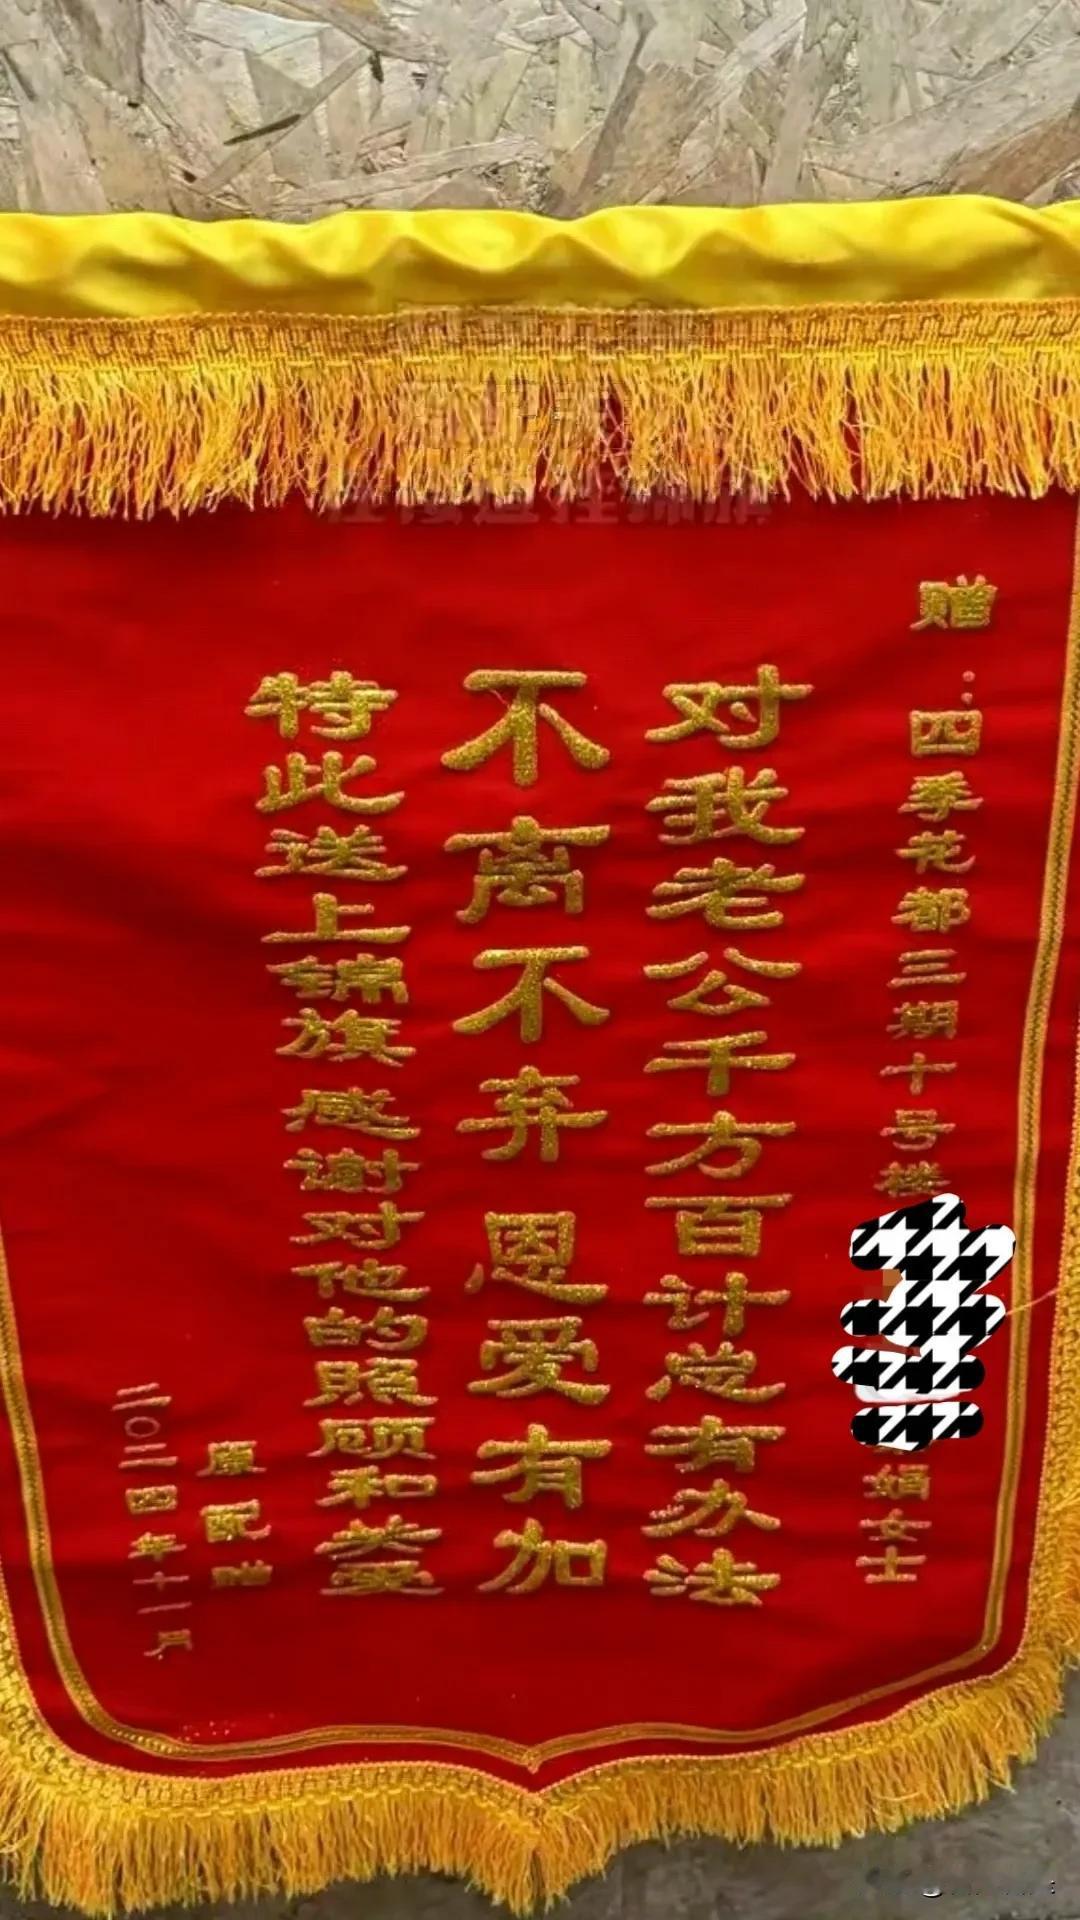 赠：四季花都三期十号楼
娟女士
对我老公千方百计总有办法
不离不弃恩爱有加
特此送上锦旗感谢对他的照顾和关爱
原配赠
二〇二四年十一月